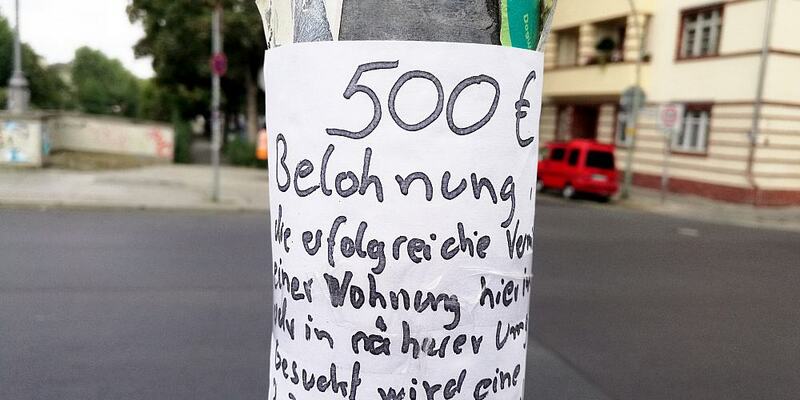 500 €
Belohnung
die erfolgreiche
einer Wohnung hier
in näherer
Gesucht wird eine